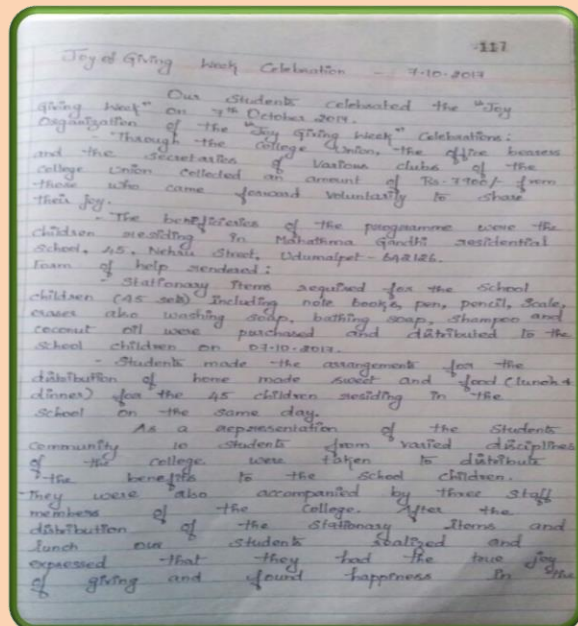 -117
Joy of Giving Week Celebration - 7-10-2017
Our Students celebrated the "Joy
Giving Week" on 7th October 2017.
Organization of the "Joy Giving Week" Celebrations:
- Through the College Union, the office bearers
and the secretaries of various clubs of the
college union collected an amount of Rs. 7900/- from
those who came forward voluntarily to share
their joy.
- The beneficiaries of the programme were the
children residing in Mahathma Gandhi residential
School, 45, Nehru Street, Udumalpet - 642126.
Form of help rendered:
- Stationary items required for the School
children (45 sets) Including note books, pen, pencil, Scale,
eraser also washing soap, bathing soap, shampoo and
coconut oil were purchased and distributed to the
School children on 07-10-2017.
- Students made the arrangements for the
distribution of home made sweet and food (lunch &
dinner) for the 45 children residing in the
School on the same day.
As a representation of the Students
community 10 students from varied disciplines
of the college were taken to distribute
the benefits to the School children.
They were also accompanied by three staff
members of the College. After the
distribution of the Stationary Items and
lunch our students realized and
expressed that they had the true joy
of giving and found happiness in the